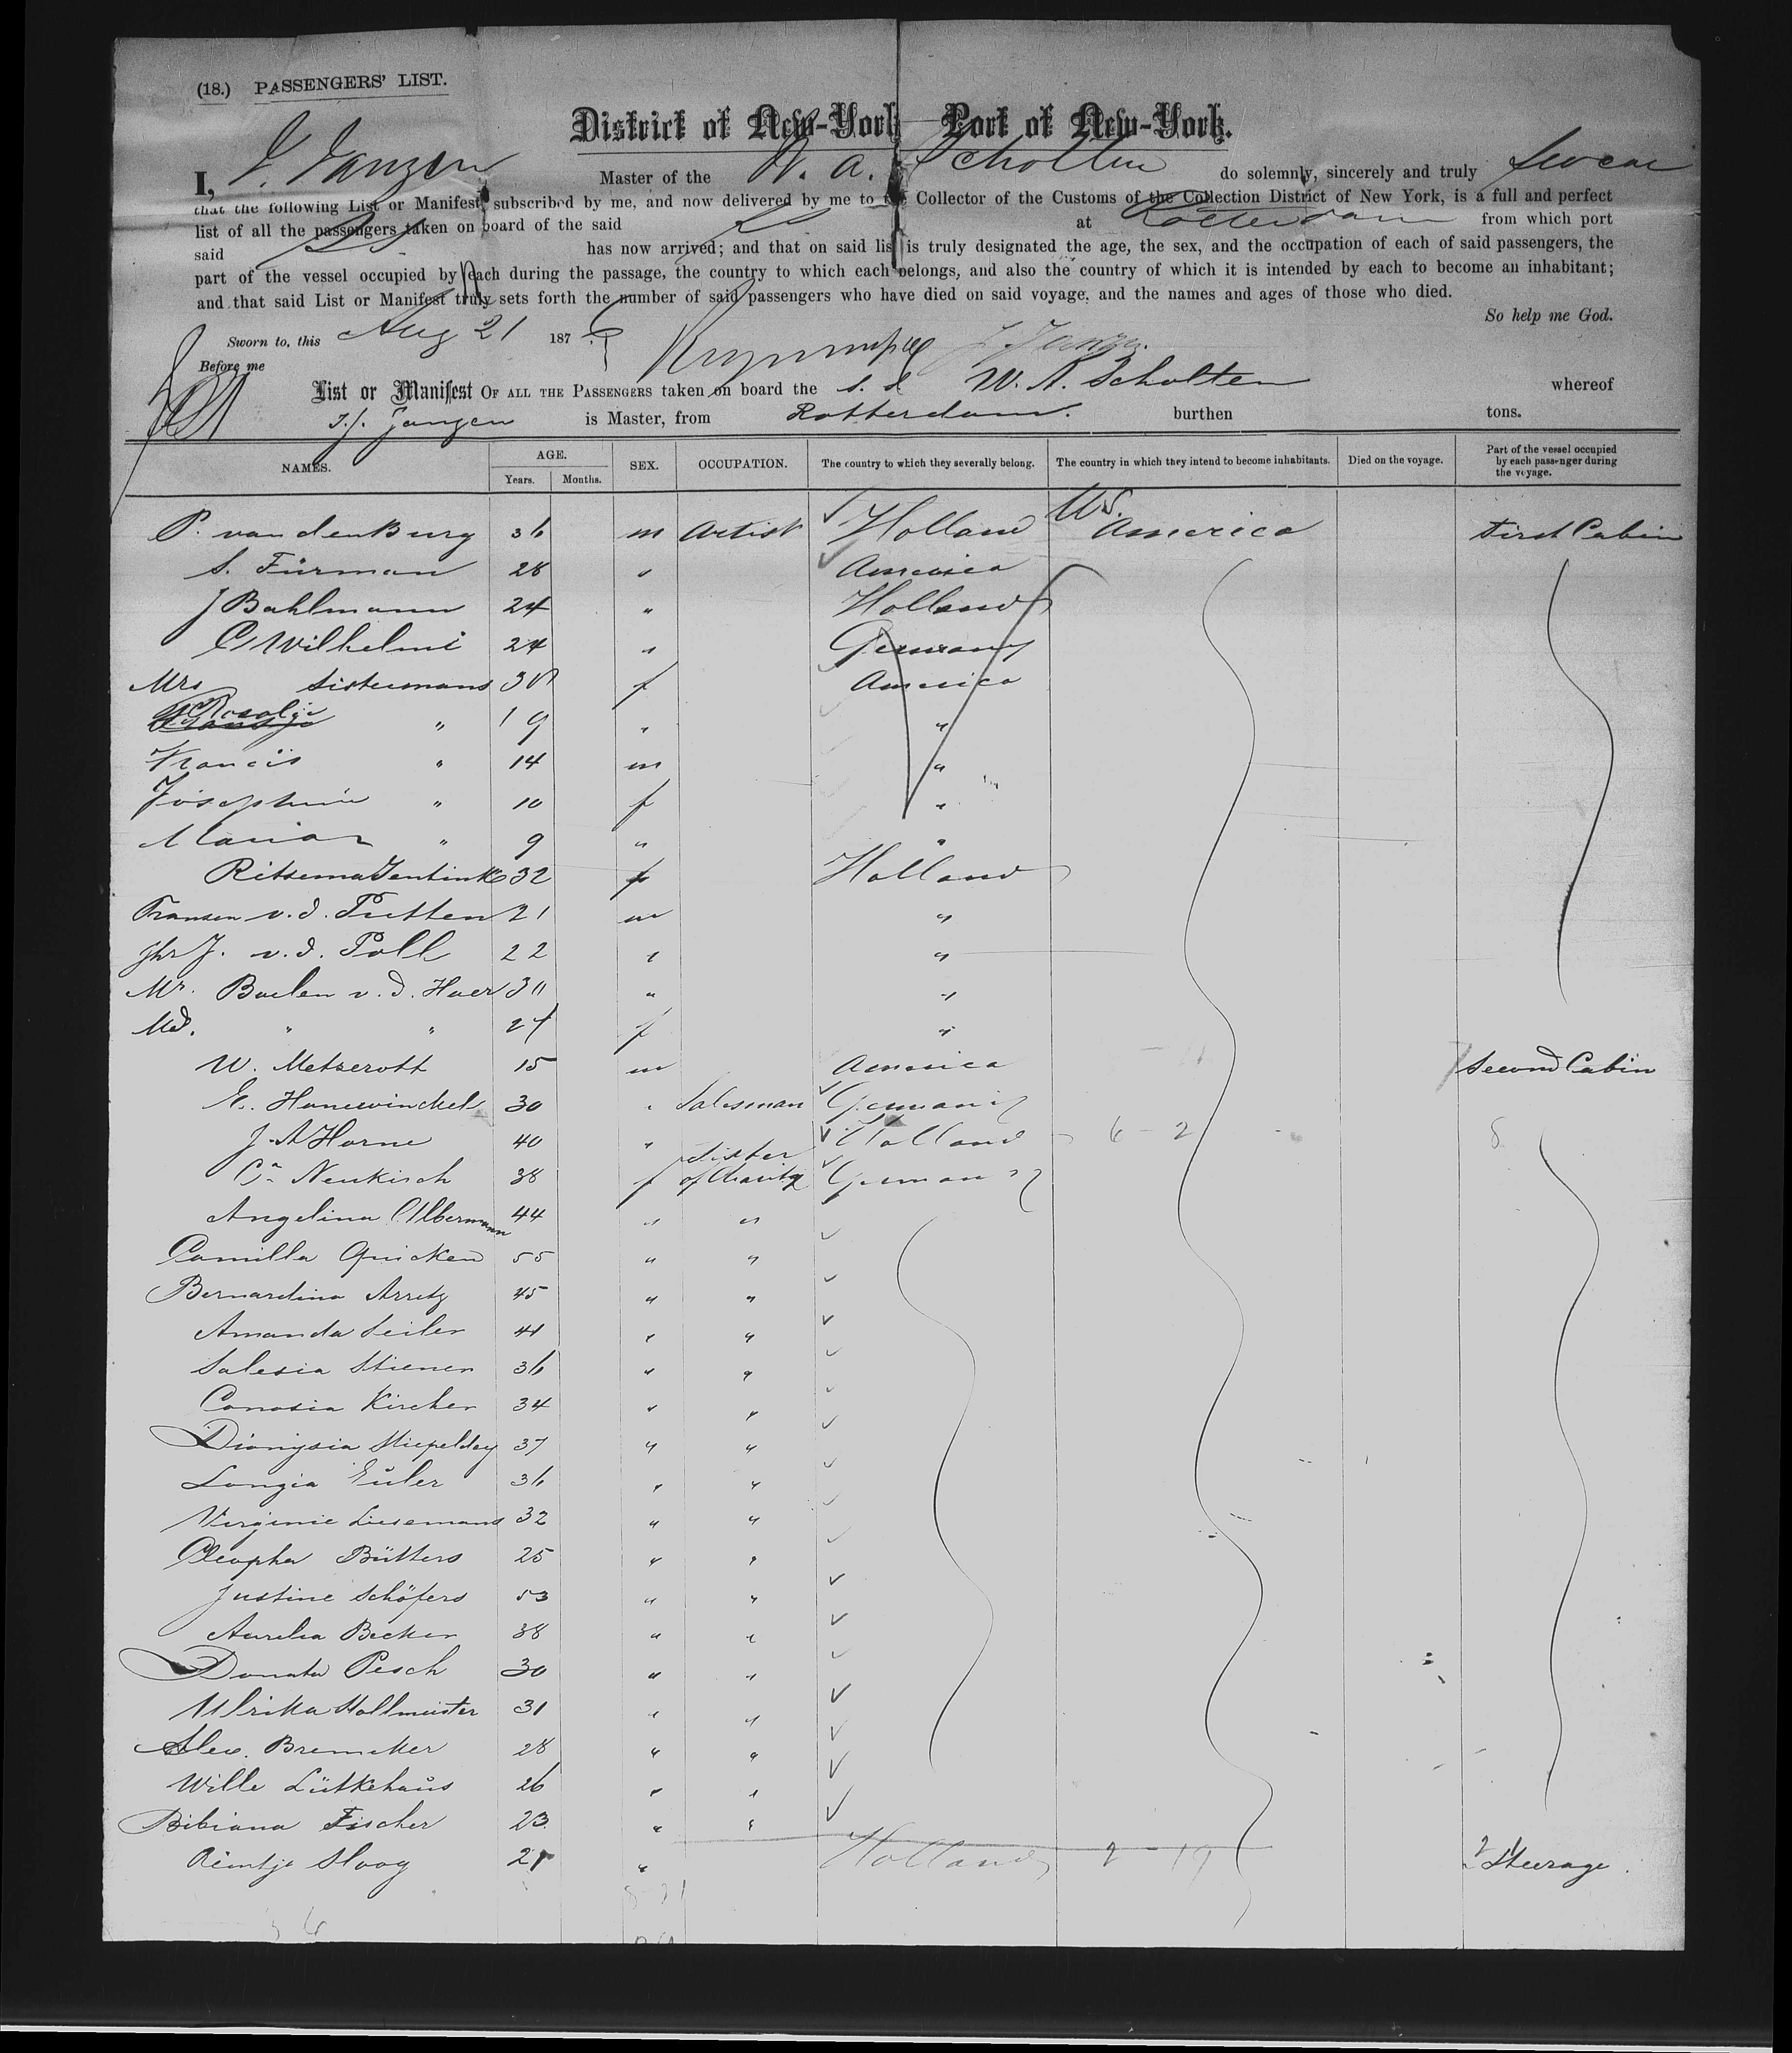 (18.) PASSENGERS' LIST.
District of New-York Port of New-York.
I, J. Janzen Master of the W. A. Scholten do solemnly, sincerely and truly swear
that the following List or Manifest, subscribed by me, and now delivered by me to the Collector of the Customs of the Collection District of New York, is a full and perfect
list of all the passengers taken on board of the said at Rotterdam from which port
said has now arrived; and that on said list is truly designated the age, the sex, and the occupation of each of said passengers, the
part of the vessel occupied by each during the passage, the country to which each belongs, and also the country of which it is intended by each to become an inhabitant;
and that said List or Manifest truly sets forth the number of said passengers who have died on said voyage, and the names and ages of those who died.
So help me God.
Sworn to, this Aug 21 187
Before me
List or Manifest OF ALL THE PASSENGERS taken on board the s. s. W. A. Scholten whereof
J. Janzen is Master, from Rotterdam. burthen tons.
NAMES. AGE. Years. Months. SEX. OCCUPATION. The country to which they severally belong. The country in which they intend to become inhabitants. Died on the voyage. Part of the vessel occupied by each passenger during the voyage.
P. van den Burg 36 m Artist Holland U.S. America First Cabin
S. Fürman 28 " America
J Bahlmann 24 " Holland
C Wilhelmi 24 " Germany
Mrs Sistermans 38 f America
Rosalie " 19 " "
Francis " 14 m "
Josephine " 10 f "
Maria " 9 " "
Ritsema Jentink 32 f Holland
Fransen v. d. Putten 21 m "
Jhr J. v. d. Poll 22 " "
Mr. Boelen v. d. Haer 30 " "
Md. " " 27 f "
W. Metzerott 15 m America Second Cabin
E. Hanewinckel 30 " Salesman Germany
J. A Horne 40 " Holland 6 - 2
Ca Neukisch 38 f Sister of Charity Germany
Angelina Albermann 44 " "
Camilla Quicken 55 " "
Bernardina Arretz 45 " "
Amanda Seiler 41 " "
Salesia Stiener 36 " "
Conosia Kircher 34 " "
Dionysia Stiepeldey 37 " "
Longia Euler 36 " "
Virginie Liesemans 32 " "
Cleopha Bütters 25 " "
Justine Schöfers 53 " "
Aurelia Becker 38 " "
Donata Pesch 30 " "
Ulrika Hollmeister 31 " "
Alex. Bremeker 28 " "
Wille Lütkehaus 26 " "
Bibiana Fischer 23 " "
Reintje Sloog 21 " Holland 2 - 19 Steerage